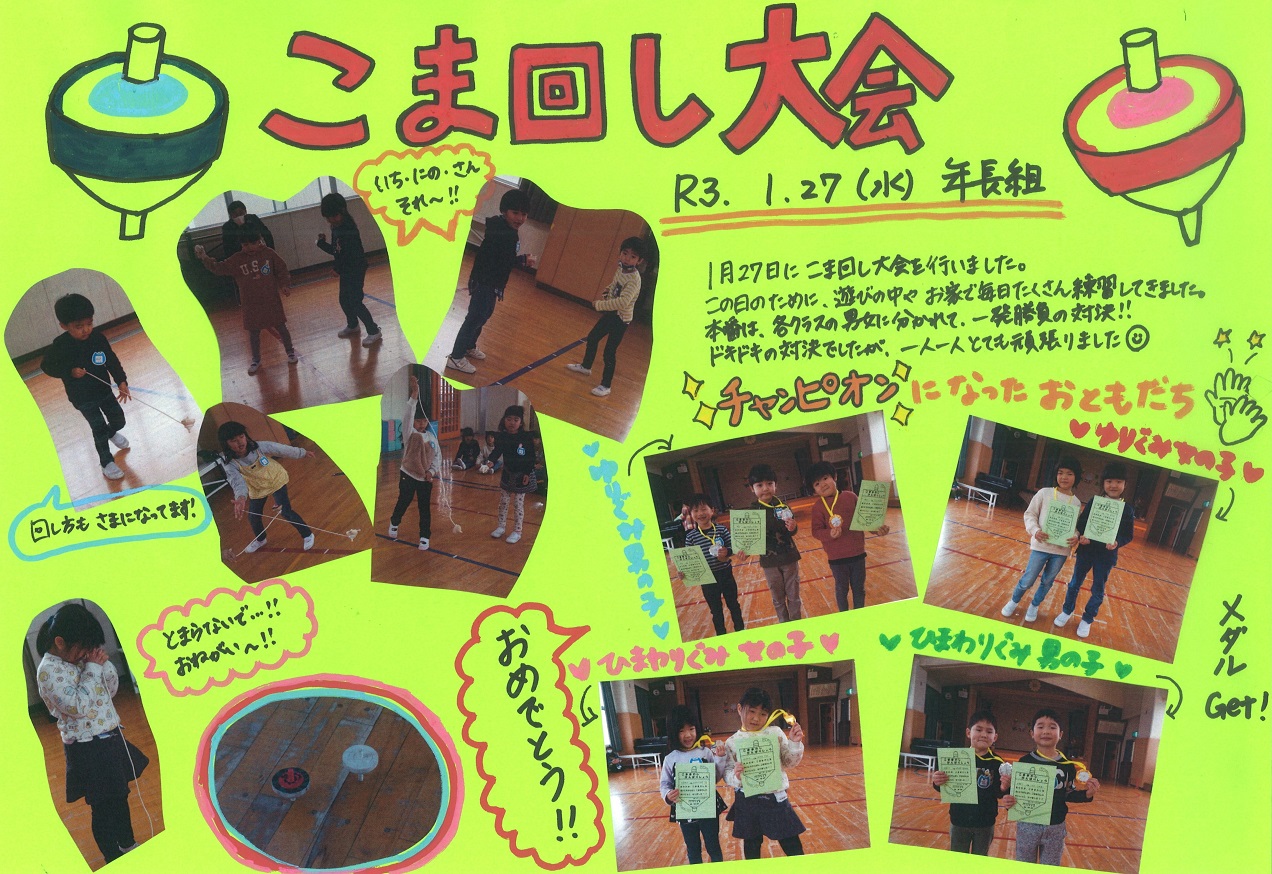 こま回し大会
R3. 1.27(水) 年長組
いち・にの・さん
それ〜!!
1月27日に こま回し大会を行いました。
この日のために、遊びの中や お家で毎日たくさん練習してきました。
本番は、各クラスの男女に分かれて、一発勝負の対決!!
ドキドキの対決でしたが、一人一人とても頑張りました
回し方も さまになってます!
チャンピオンになった おともだち
ゆりぐみ男の子
ゆりぐみ女の子
とまらないで…!!
おねがい〜!!
おめでとう!!
ひまわりぐみ 女の子
ひまわりぐみ 男の子
メダル
Get!
U.S.A